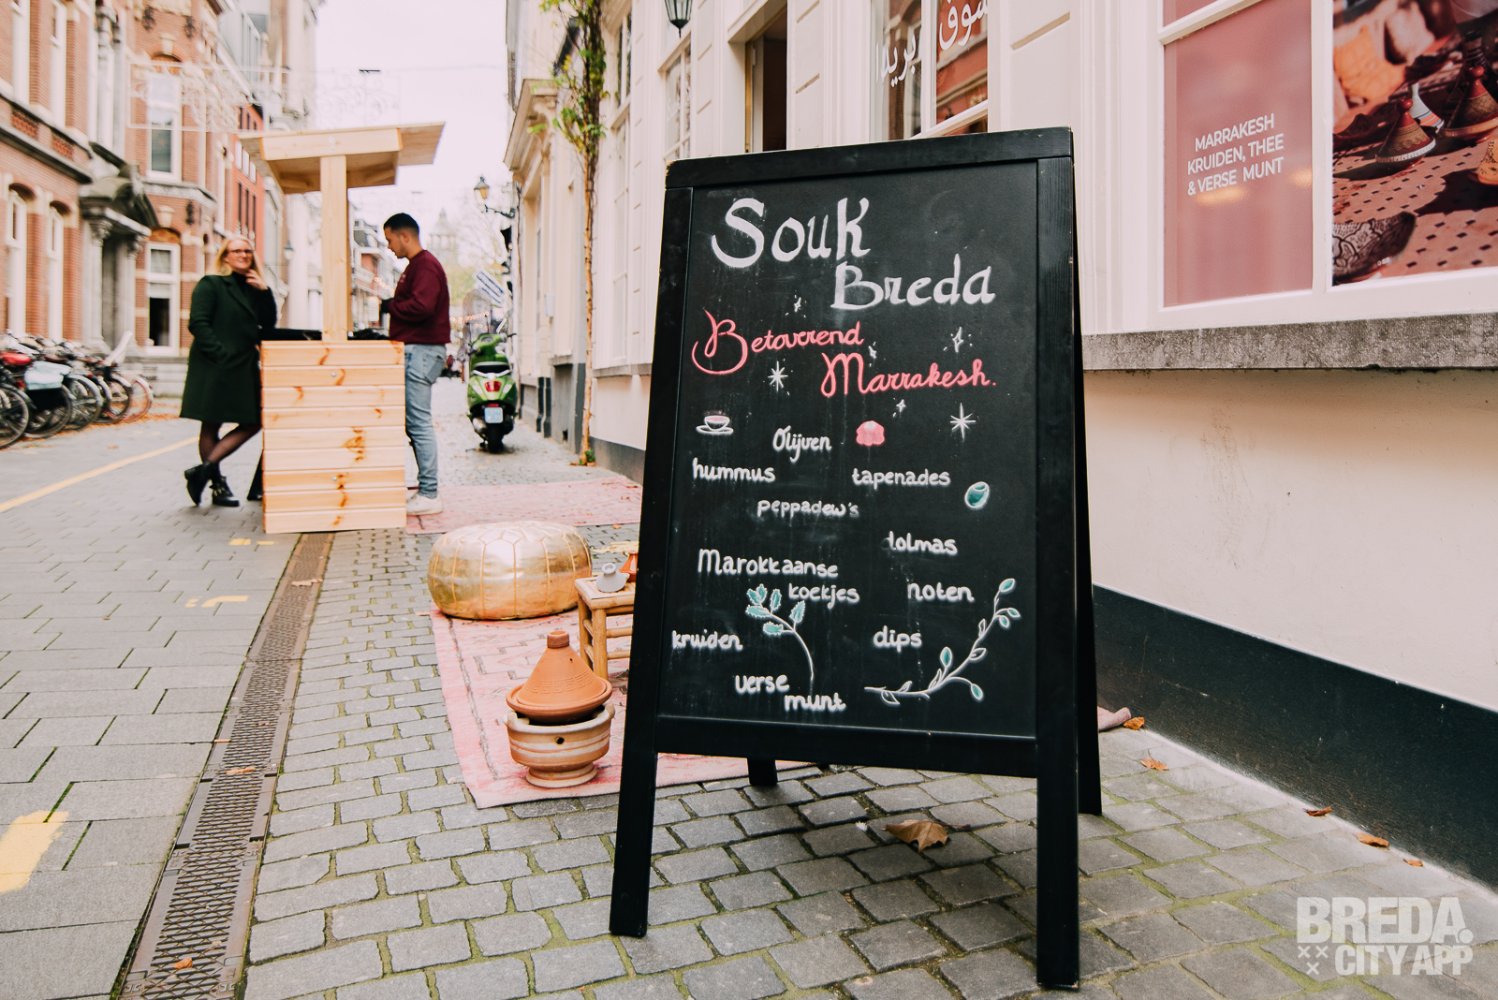 سوق
بريدا
MARRAKESH
KRUIDEN, THEE
& VERSE MUNT
Souk
Breda
Betoverend
Marrakesh.
Olijven
hummus
tapenades
peppadew's
dolmas
Marokkaanse
koekjes
noten
kruiden
dips
verse
munt
BREDA.
CITY APP